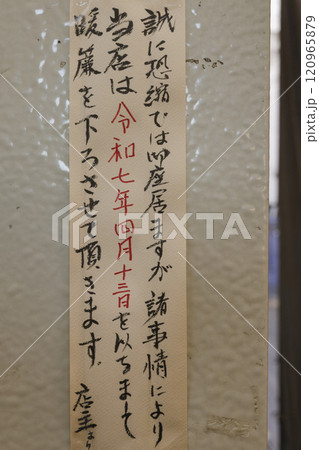 誠に恐縮では御座居ますが諸事情により
当店は令和七年四月十三日を以ちまして
暖簾を下ろさせて頂きます。店主より
PIXTA
120965879